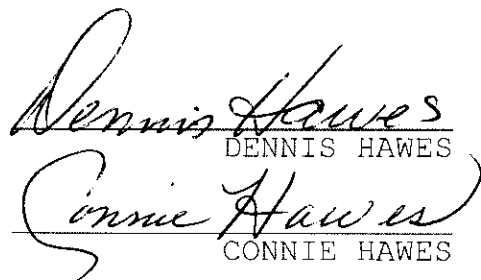 Dennis Hawes
DENNIS HAWES
Connie Hawes
CONNIE HAWES